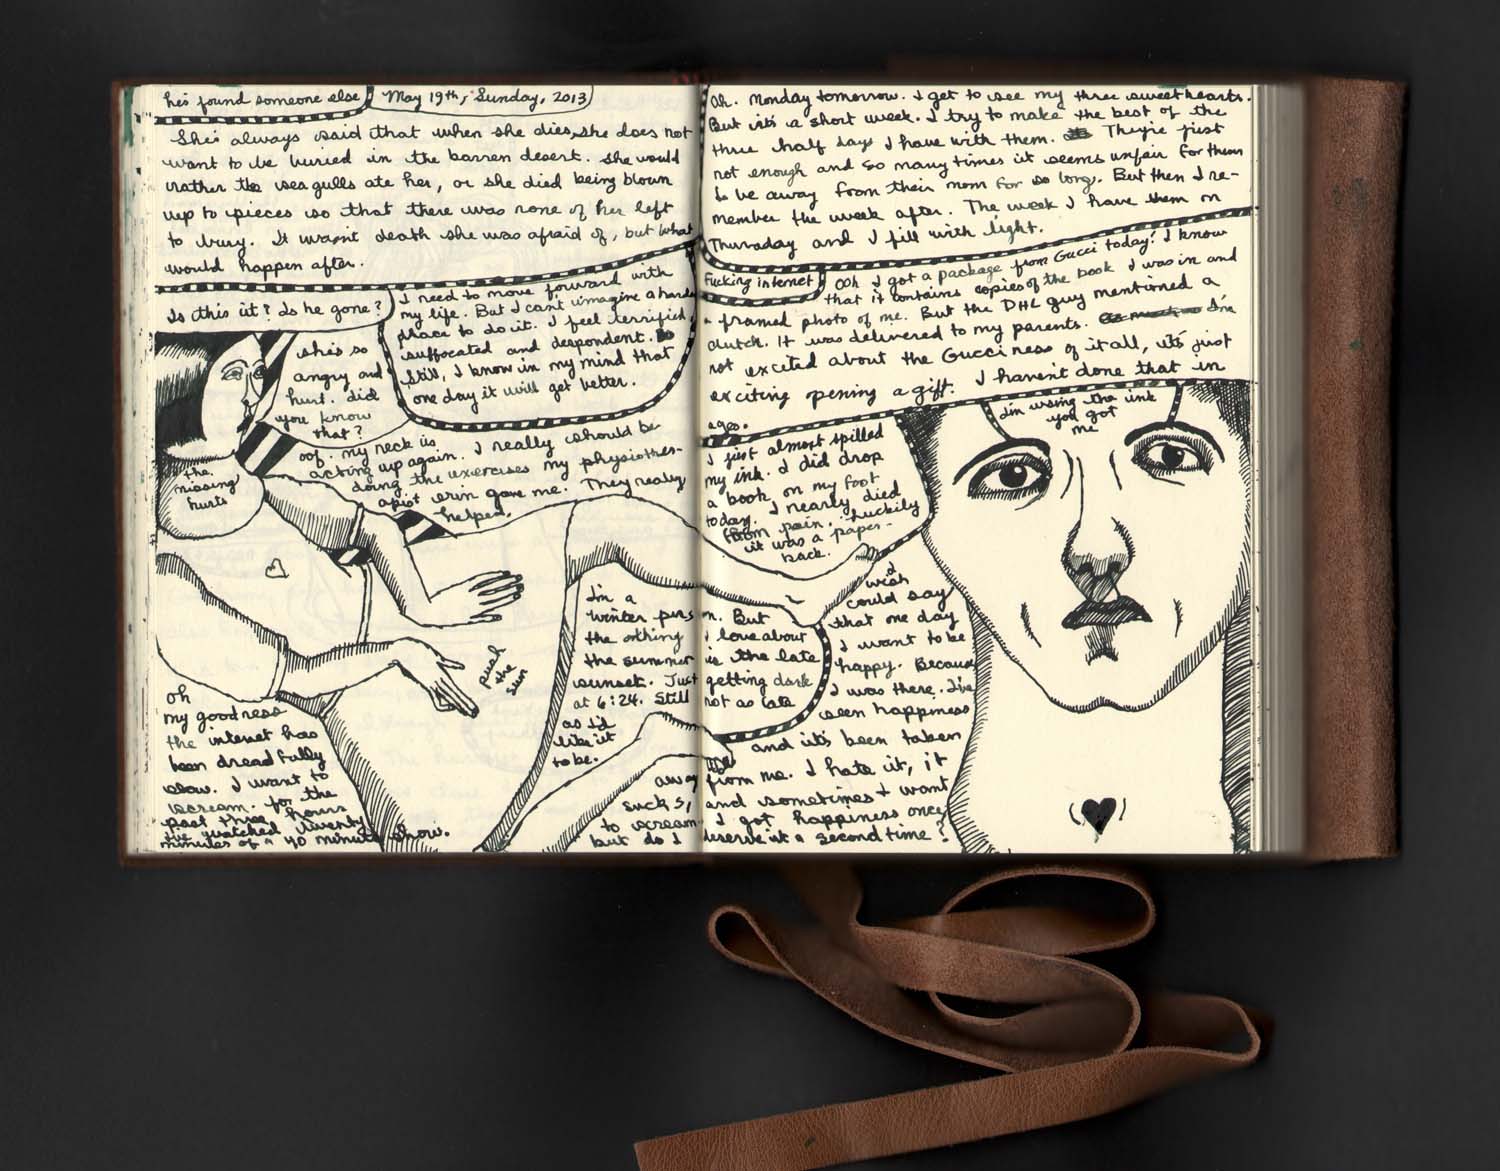 he's found someone else
May 19th, Sunday, 2013
She's always said that when she dies, she does not
want to be buried in the barren desert. She would
rather the sea gulls ate her, or she died being blown
up to pieces so that there was none of her left
to bury. It wasn't death she was afraid of, but what
would happen after.
Is this it? Is he gone?
I need to move forward with
my life. But I can't imagine a harder
place to do it. I feel terrified,
suffocated and despondent.
Still, I know in my mind that
one day it will get better.
she's so
angry and
hurt. did
you know
that?
oof. my neck is
acting up again. I really should be
doing the exercises my physiother-
apist erin gave me. They really
helped.
the
missing
hurts
push
the
sun
oh
my goodness
the internet has
been dreadfully
slow. I want to
scream. for the
past three hours
I've watched twenty
minutes of a 40 minute show.
I'm a
winter person. But
the only thing I love about
the summer is the late
sunset. Just getting dark
at 6:24. Still not as late
as I'd
like it
to be.
Oh. Monday tomorrow. I get to see my three sweethearts.
But it's a short week. I try to make the best of the
three half days I have with them. They're just
not enough and so many times it seems unfair for them
to be away from their mom for so long. But then I re-
member the week after. The week I have them on
Thursday and I fill with light.
Fucking internet
Ooh I got a package from Gucci today! I know
that it contains copies of the book I was in and
a framed photo of me. But the DHL guy mentioned a
clutch. It was delivered to my parents. I'm
not excited about the Gucciness of it all, it's just
exciting opening a gift. I haven't done that in
ages.
I just almost spilled
my ink. I did drop
a book on my foot
today. I nearly died
from pain. Luckily
it was a paper-
back.
I'm using the ink
you got
me
I
wish
I could say
that one day
I want to be
happy. Because
I was there. I've
seen happiness
and it's been taken
away from me. I hate it, it
sucks, and sometimes I want
to scream. I got happiness once
but do I deserve it a second time?